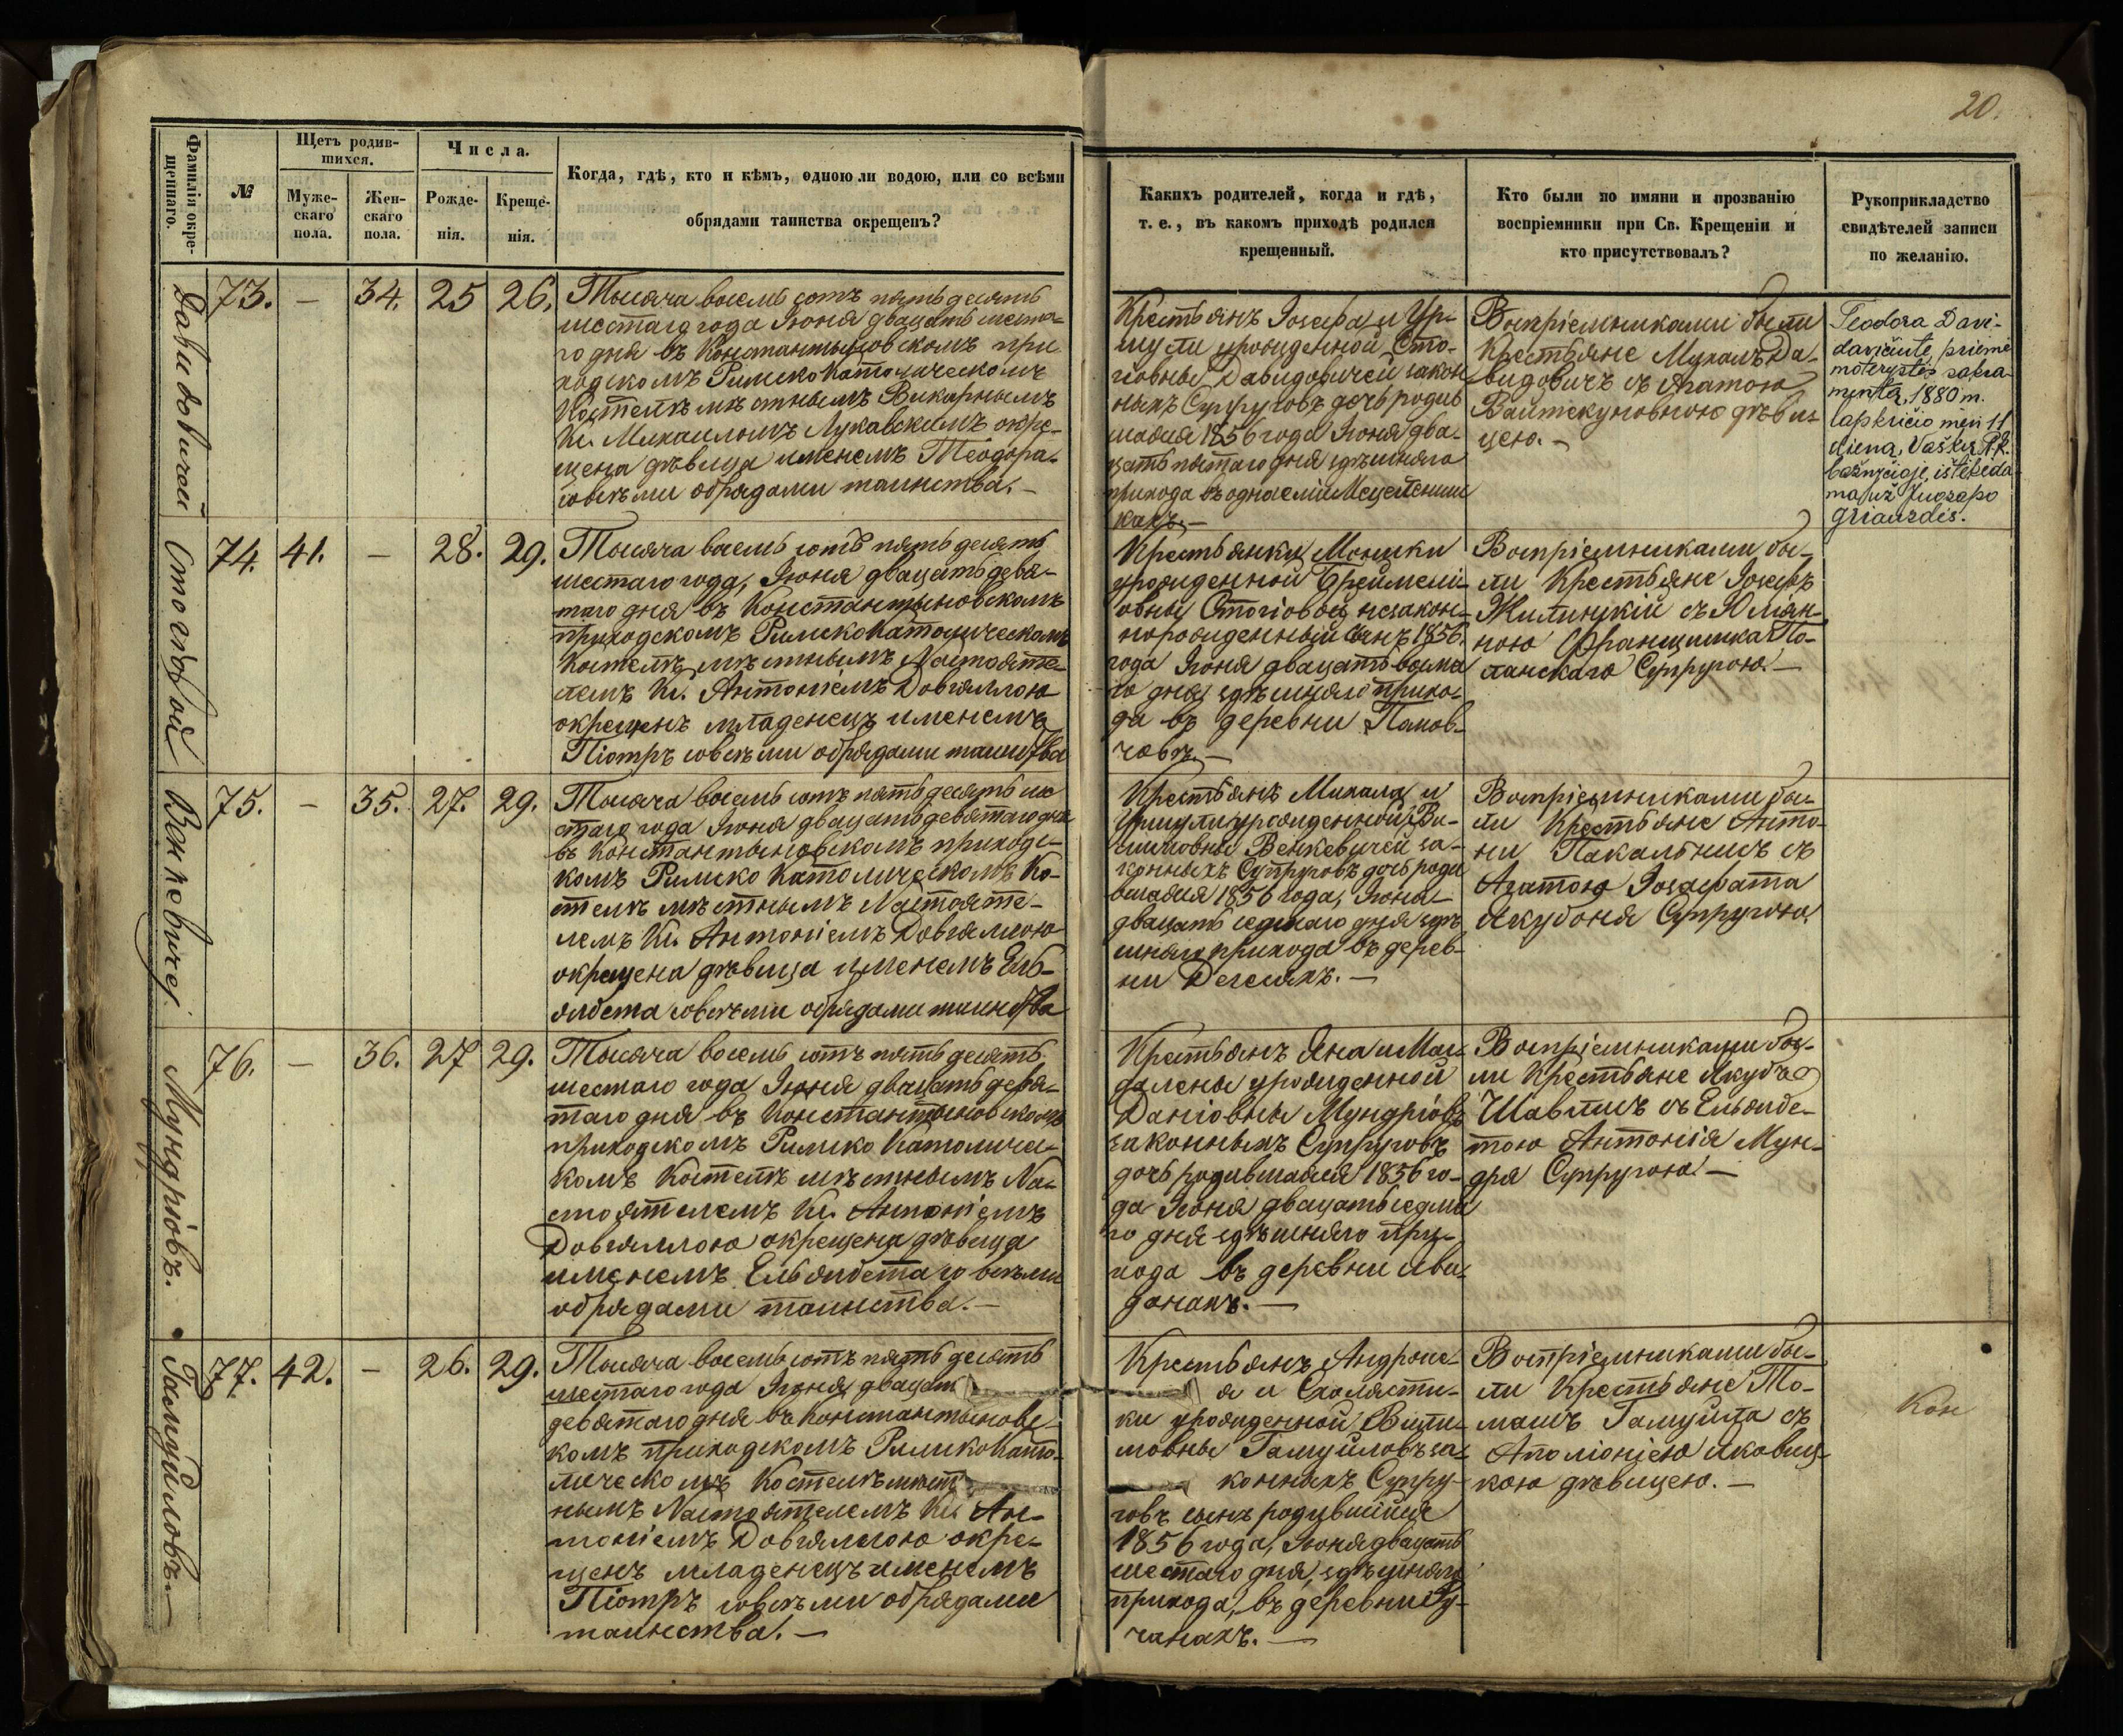 20.
Фамилія окре-
щеннаго.
№
Щетъ родив-
шихся.
Муже-
скаго
пола.
Жен-
скаго
пола.
Числа.
Рожде-
нія.
Креще-
нія.
Когда, гдѣ, кто и кѣмъ, одною ли водою, или со всѣми
обрядами таинства окрещенъ?
Какихъ родителей, когда и гдѣ,
т. е., въ какомъ приходѣ родился
крещенный.
Кто были по имяни и прозванію
воспріемники при Св. Крещеніи и
кто присутствовалъ?
Рукоприкладство
свидѣтелей записи
по желанію.
Давидовичей
73. — 34. 25 26.
Тысяча восемь сотъ пять десять
шестаго года Іюня двацать шеста-
го дня въ Константыновскомъ при
ходскомъ Римско Католическомъ
Костелѣ мѣстнымъ Викарнымъ
Кс. Михаиломъ Лукавскимъ окре-
щена дѣвица именемъ Теодора
совсѣми обрядами таинства. —
Крестьянъ Іосефа и Ур-
шули урожденной Сто-
Давидовичей закон
ныхъ Супруговъ дочь родив
шаяся 1856 года Іюня два-
цать пятаго дня здѣшняго
прихода въ
Воспріемниками были
Крестьяне Михалъ Да-
видовичъ съ Агатою
дѣви-
цею. —
Teodora Davi-
davičiutė, priėmė
moterystės sakra-
mentą, 1880 m.
lapkričio mėn 11
dieną, Vaškų R.K.
bažnyčioje, ištekėda-
ma už Juozapo
Griauzdės.
74. 41. — 28. 29.
Тысяча восемь сотъ пять десять
шестаго года, Іюня двацать девя-
таго дня въ Константыновскомъ
приходскомъ Римско Католическомъ
Костелѣ мѣстнымъ Настояте-
лемъ Кс. Антоніемъ Довгяллою
окрещенъ младенецъ именемъ
Піотръ совсѣми обрядами таинства
Крестьянки Моники
урожденной
незакон-
норожденный сынъ 1856.
года Іюня двацать восма
го дня здѣшняго прихо-
да въ деревни
Воспріемниками бы-
ли Крестьяне Іосефъ
Жилинскій съ Юліян-
ною Францишка По-
ланскаго Супругою. —
Венкевичей
75. — 35. 27. 29.
Тысяча восемь сотъ пять десять ше
стаго года Іюня двацать девятаго дня
въ Константыновскомъ приходс-
комъ Римско Католическомъ Ко-
стелѣ мѣстнымъ Настояте-
лемъ Кс. Антоніемъ Довгяллою
окрещена дѣвица именемъ Ель-
жбета совсѣми обрядами таинства
Крестьянъ Михала и
Уршули урожденной
Венкевичей за-
конныхъ Супруговъ дочь роди
вшаяся 1856 года, Іюня
двацать седмаго дня здѣ
шняго прихода въ дерев-
ни
Воспріемниками бы-
ли Крестьяне Анто-
ни Пакальнисъ съ
Агатою Іозафата
Якубоня Супругою
Мундріовъ.
76. — 36. 27 29.
Тысяча восемь сотъ пять десять
шестаго года Іюня двацать девя-
таго дня въ Константыновскомъ
приходскомъ Римско Католичес-
комъ Костелѣ мѣстнымъ На-
стоятелемъ Кс. Антоніемъ
Довгяллою окрещена дѣвица
именемъ Ельжбета со всѣми
обрядами таинства. —
Крестьянъ Яна и Маг-
далены урожденной
Мундріовъ
законныхъ Супруговъ
дочь родившаяся 1856 го-
да Іюня двацать седма
го дня здѣшняго при-
хода въ деревни
Воспріемниками бы-
ли Крестьяне Якубъ
съ Ельжбе-
тою Антонія Мун-
дря Супругою. —
Гамуйловъ. —
77. 42. — 26. 29.
Тысяча восемь сотъ пять десять
шестаго года Іюня двацать
девятаго дня въ Константыновс-
комъ приходскомъ Римско Като-
лическомъ Костелѣ мѣст-
нымъ Настоятелемъ Кс. Ан-
тоніемъ Довгяллою окре-
щенъ младенецъ именемъ
Піотръ совсѣми обрядами
таинства. —
Крестьянъ Андроне-
я и Схоласти-
ки урожденной
Гамуйловъ за-
конныхъ Супру-
говъ сынъ родившійся
1856 года, Іюня двацать
шестаго дня, здѣшняго
прихода, въ деревни
Воспріемниками бы-
ли Крестьяне То-
машъ Гамуйла съ
Аполіоніею
дѣвицею. —
Кон